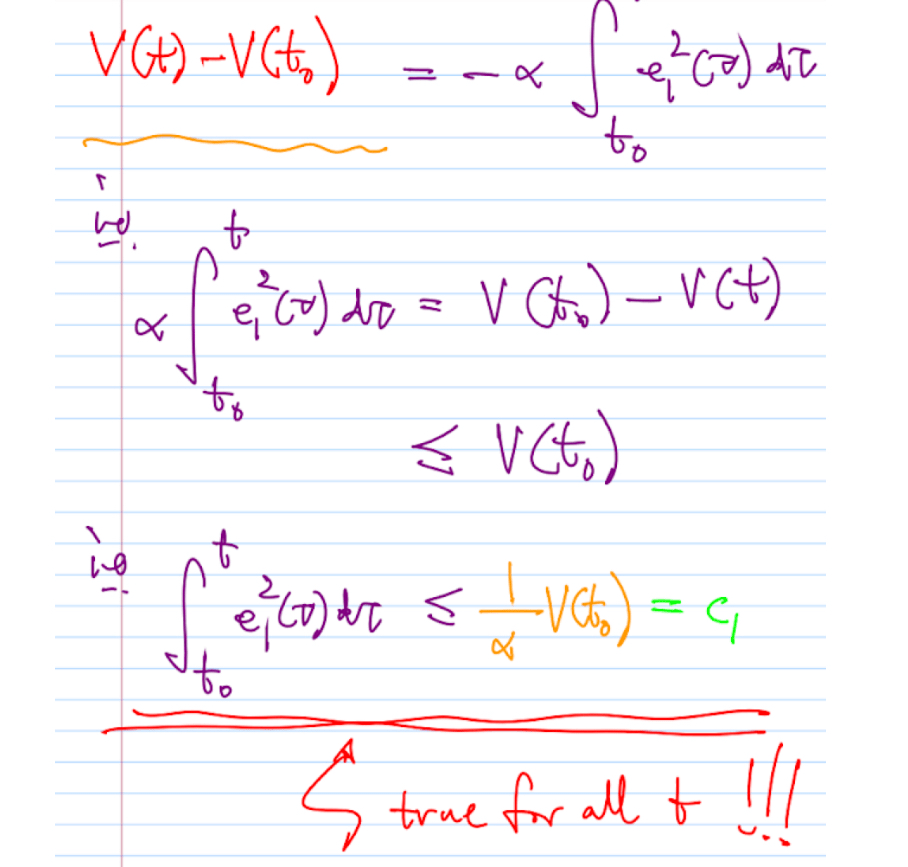 V(t) - V(t₀) = -α ∫_{t₀} e₁²(τ) dτ
i.e. α ∫_{t₀}^{t} e₁²(τ) dτ = V(t₀) - V(t)
≤ V(t₀)
i.e. ∫_{t₀}^{t} e₁²(τ) dτ ≤ 1/α V(t₀) = c₁
true for all t !!!